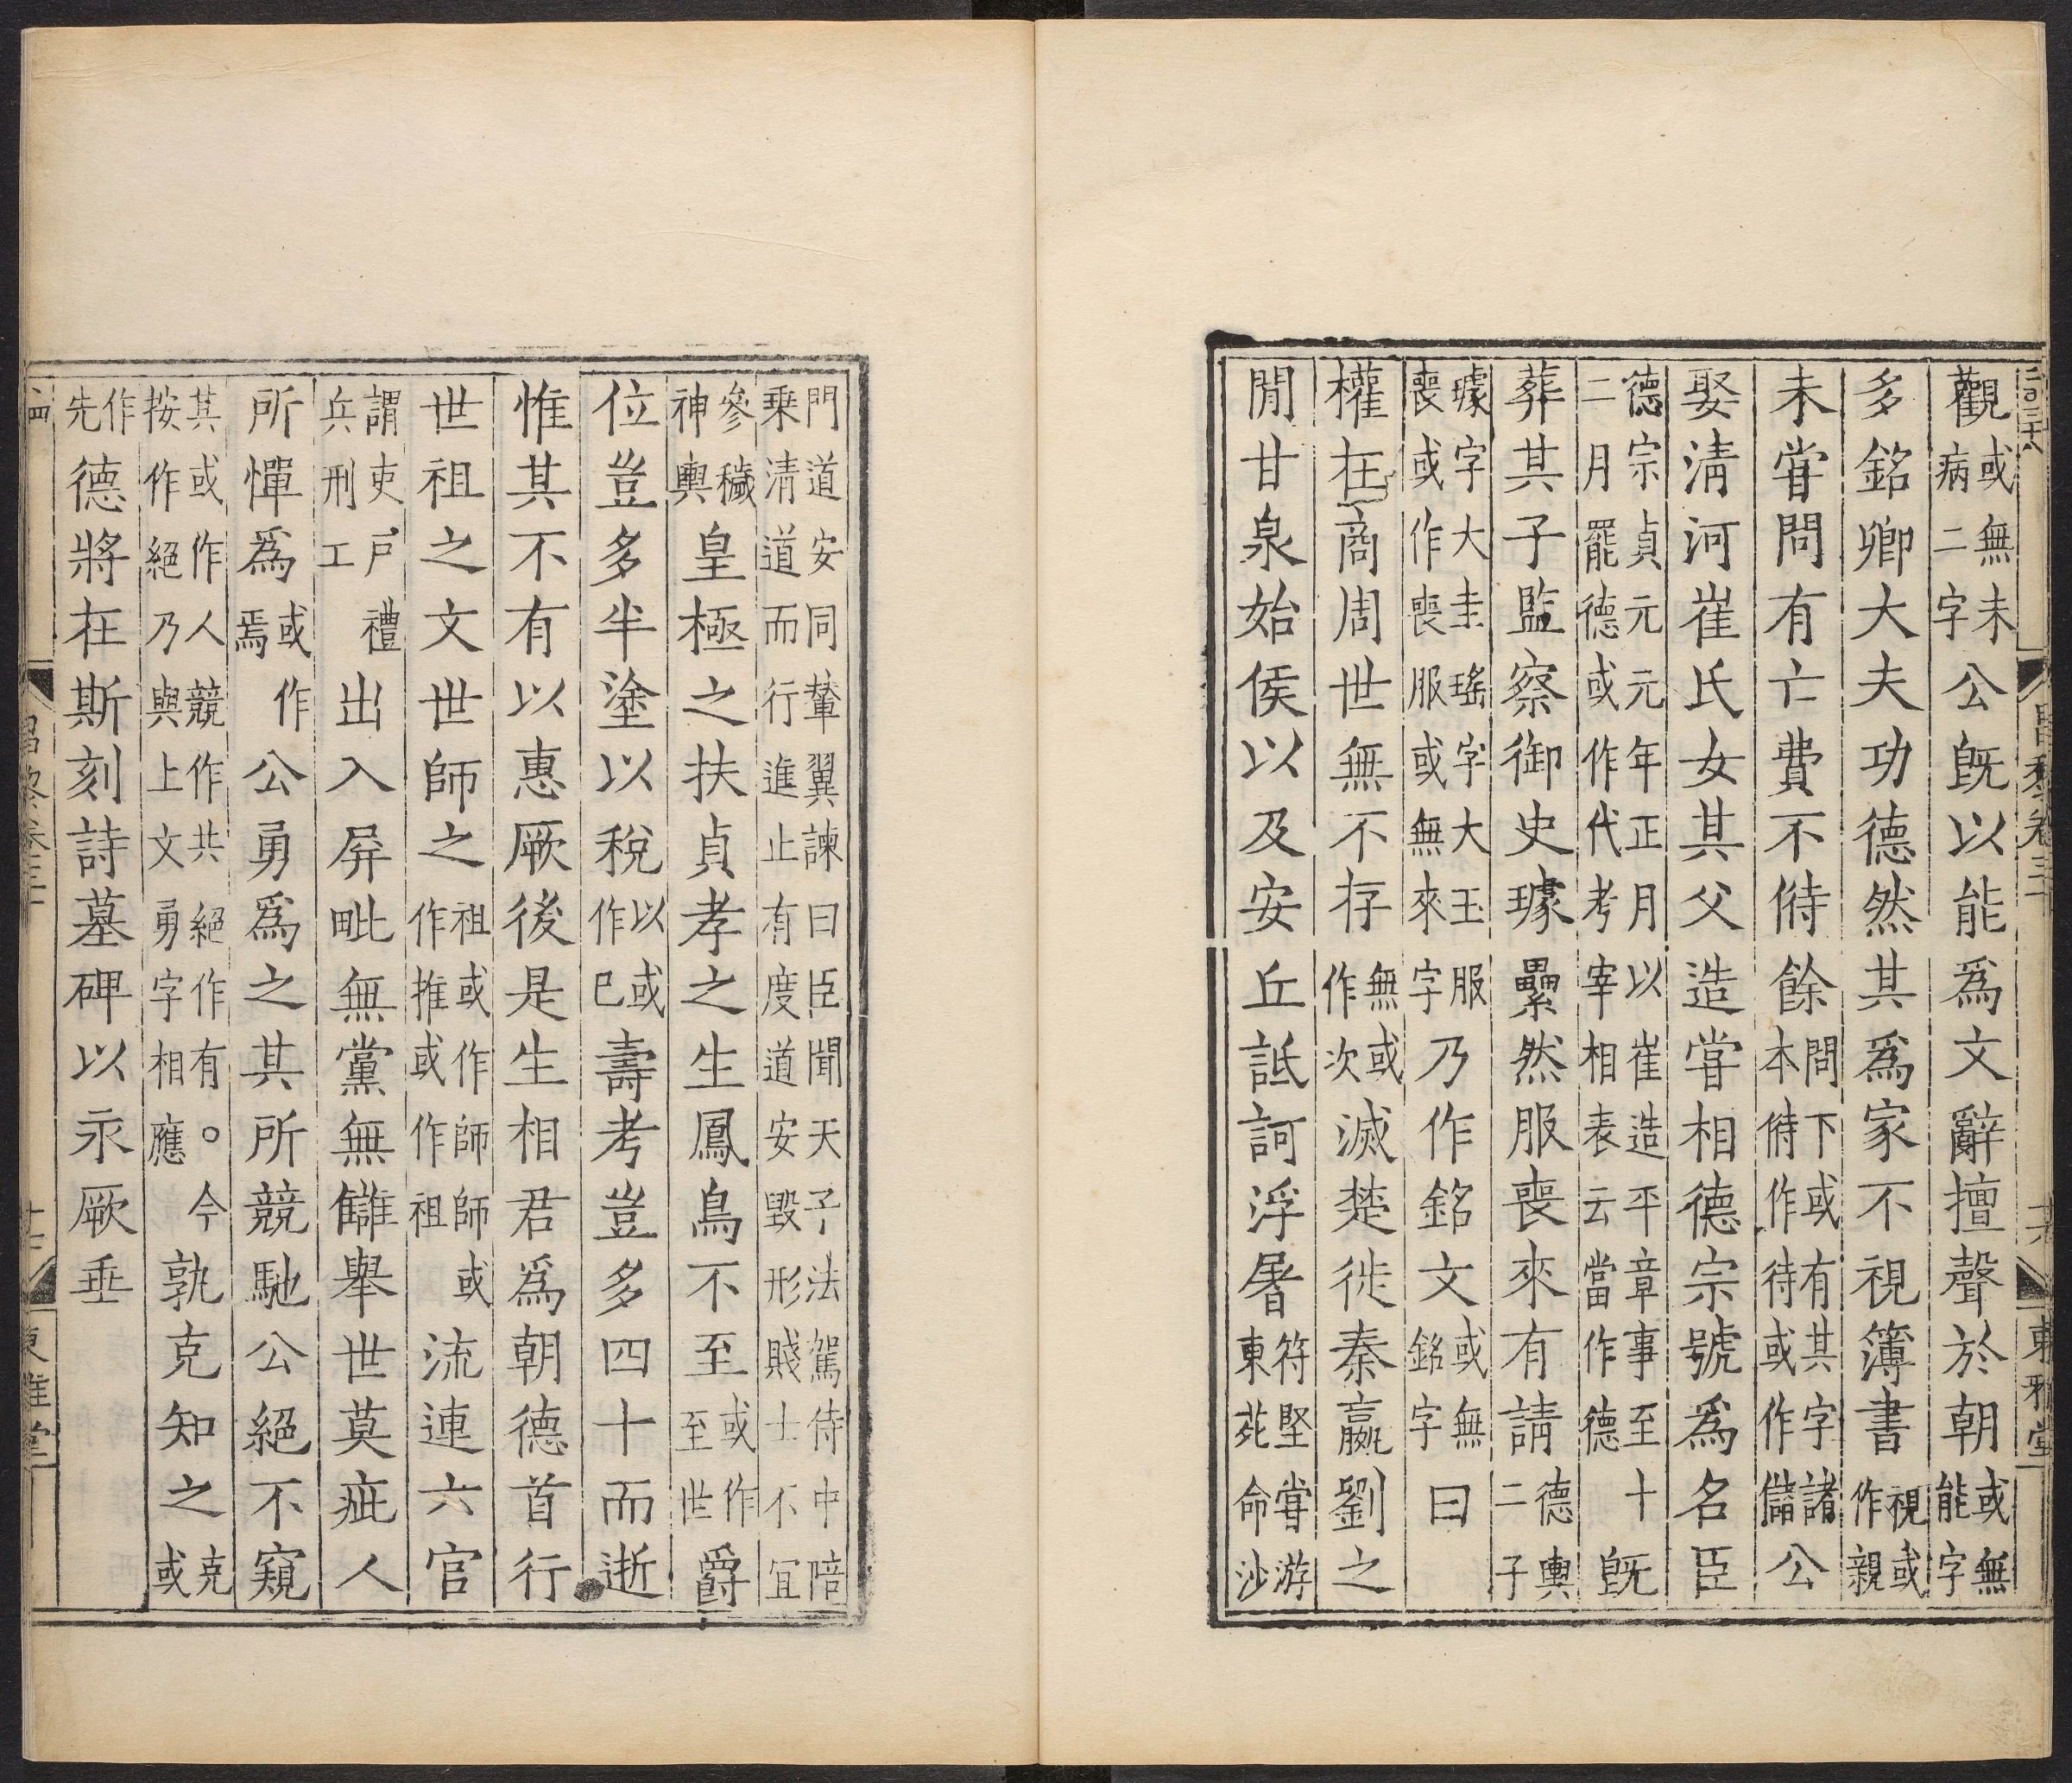 觀或無未病二字公旣以能爲文辭擅聲於朝或無能字
多銘卿大夫功德然其爲家不視簿書視或作親
未甞問有亡費不偫餘問下或有其字諸本偫作待或作儲公
娶淸河崔氏女其父造甞相德宗號爲名臣
德宗貞元元年正月以崔造平章事至十二月罷德或作代考宰相表云當作德旣
葬其子監察御史璩纍然服喪來有請德輿二子
璩字大圭瑤字大玉服喪或作喪服或無來字乃作銘文或無銘字曰
權在商周世無不存無或作次滅楚徙秦嬴劉之
閒甘泉始侯以及安丘詆訶浮屠符堅甞游東苑命沙
門道安同輦翼諫曰臣聞天子法駕侍中陪乗淸道而行進止有度道安毀形賤士不宜
參穢神輿皇極之扶貞孝之生鳳鳥不至或作至世爵
位豈多半塗以稅以或作巳壽考豈多四十而逝
惟其不有以惠厥後是生相君爲朝德首行
世祖之文世師之祖或作師師或作推或作祖流連六官
謂吏戶禮兵刑工出入屛毗無黨無讎舉世莫疵人
所憚爲或作焉公勇爲之其所競馳公絕不窺
其或作人競作共絕作有。今按作絕乃與上文勇字相應孰克知之克或
作先德將在斯刻詩墓碑以永厥垂
東雅堂